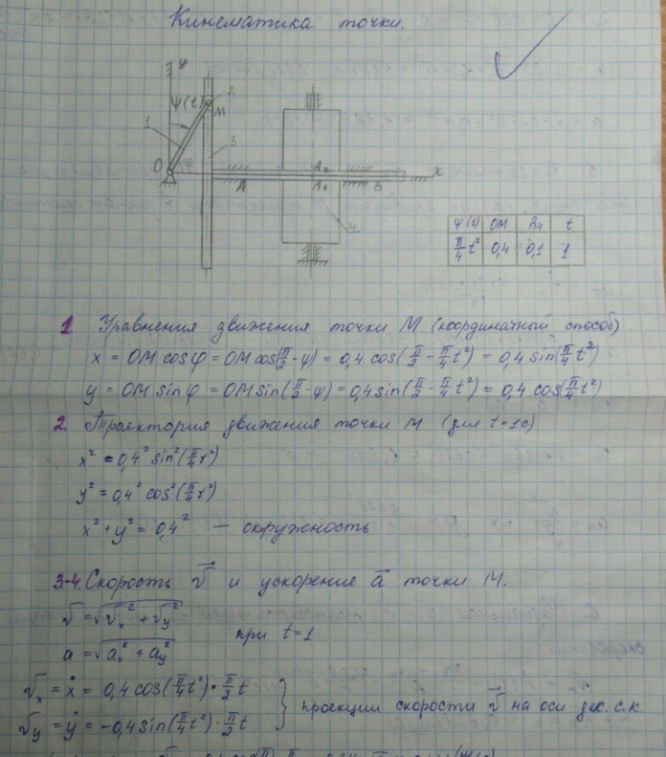 Кинематика точки.
y
ψ(t)
2
M
1
3
O
A
A₂
A₁
B
x
4
ψ(t) OM h₄ t
π/4 t² 0,4 0,1 1
1. Уравнения движения точки M (координатный способ)
x = OM cos φ = OM cos(π/2 - ψ) = 0,4 cos(π/2 - π/4 t²) = 0,4 sin(π/4 t²)
y = OM sin φ = OM sin(π/2 - ψ) = 0,4 sin(π/2 - π/4 t²) = 0,4 cos(π/4 t²)
2. Траектория движения точки M (для t=1c)
x² = 0,4² sin²(π/4 t²)
y² = 0,4² cos²(π/4 t²)
x² + y² = 0,4² — окружность
3-4. Скорость v⃗ и ускорение a⃗ точки M.
v = √(vₓ² + v_y²)
при t=1
a = √(aₓ² + a_y²)
vₓ = ẋ = 0,4 cos(π/4 t²) · π/2 t
v_y = ẏ = -0,4 sin(π/4 t²) · π/2 t
} проекции скорости v⃗ на оси дек. с.к.